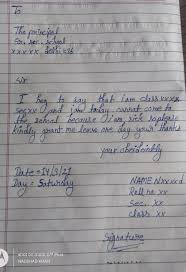 To
The principal
Gov. sec. school
xxxxx delhi-86
Sir
I beg to say that i am class xxxx
sec xx and i am today cannot come to
the school because i am sick so please
kindly grant me leave one day your thanks
your obediently
Date = 14/3/21
Day = Saturday
NAME Nxxxxd
Roll no xx
Sec. xx
class xx
Signature